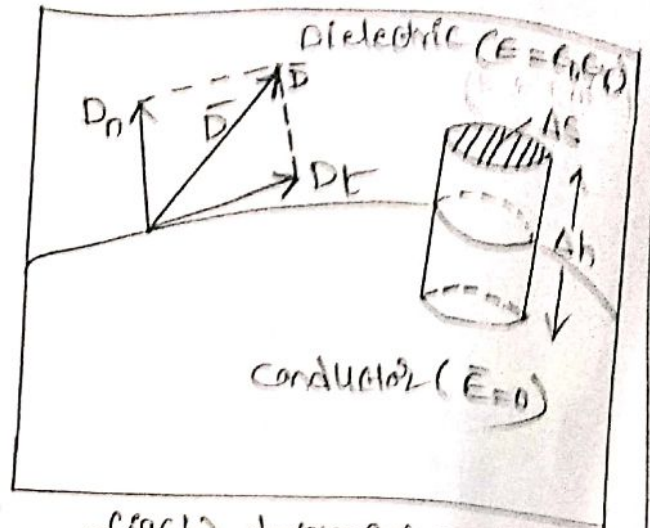 Dielectric (E = E₀Eᵣ)
D̅
Dₙ
D̅
ΔS
Dt
Δh
Conductor (E̅=0)